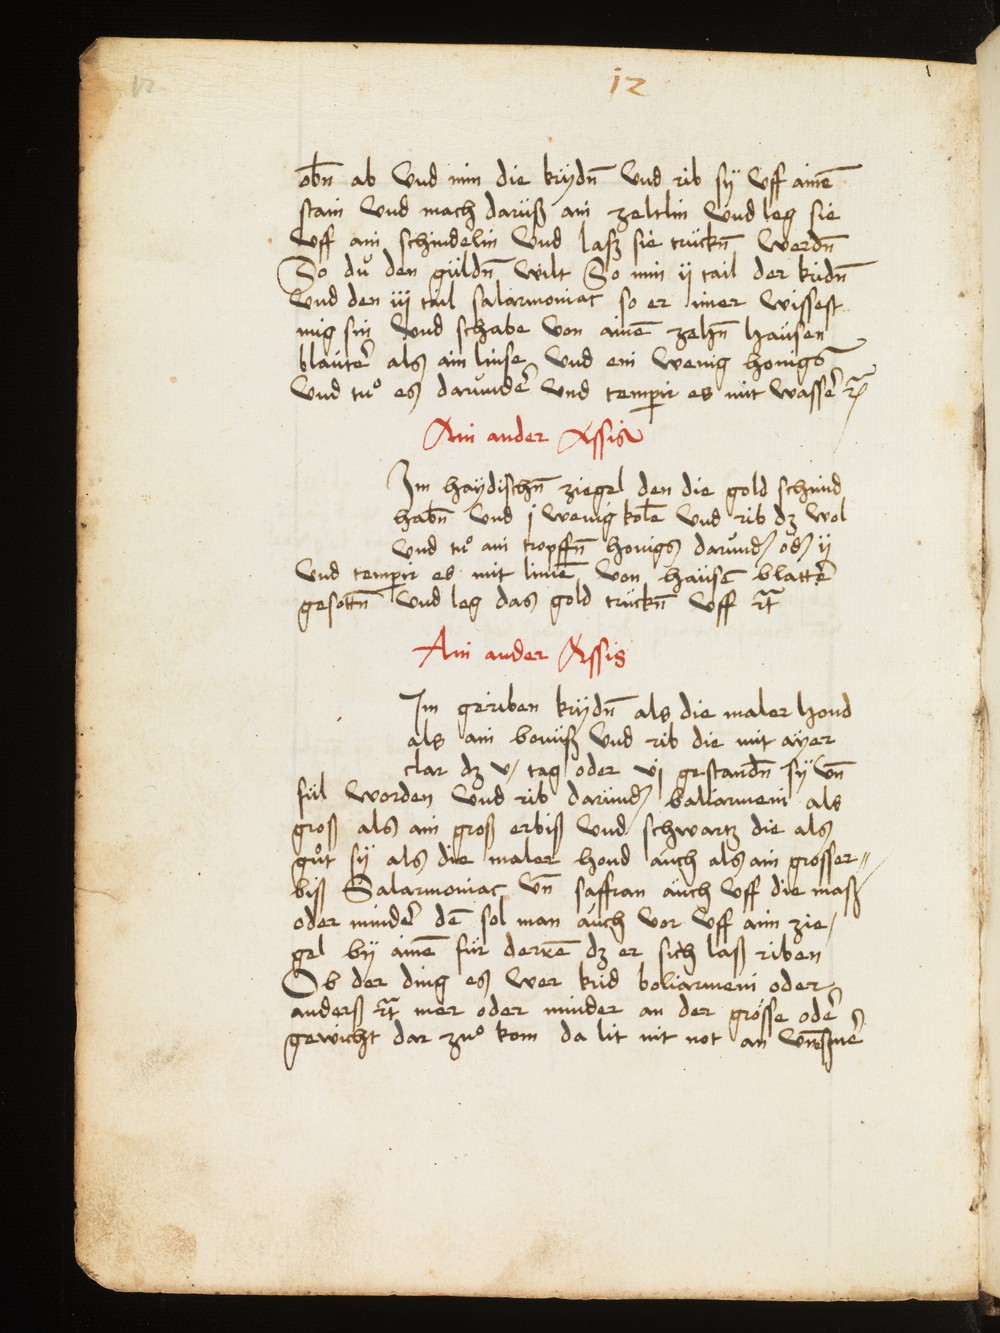 12
12
obn̄ ab Vnd nim die krÿdn̄ Vnd rib sÿ Vff ainē
stain Vnd mach darüß ain zeltlin Vnd leg sie
Vff ain schindelin Vnd lasz sie trückn̄ werdn̄
So dü den güldn̄ wilt So nim ij tail der kridn̄
Vnd den iij tail salarmoniac so er imer wissest
mig sin Vnd schabe von ainē zehn̄ haüsen
blauter als ain linse Vnd ein wenig honigs
Vnd tuͦ es daründer Vnd temperir es mit wasser
Ain ander Assis
Im haÿdischn̄ ziegel den die gold schmid
habn̄ Vnd j wenig kole Vnd rib dz wol
Vnd tuͦ ain tropffn̄ honigs darund od ij
Vnd temperir es mit limē von haüsē blatter
gesottn̄ Vnd leg das gold trückn̄ Vff
Ain ander Assis
Im geriben krÿdn̄ als die maler hond
als ain bonüß Vnd rib die mit aÿer
clar dz v tag oder vj gestandn̄ sÿ vn̄
fül worden Vnd rib daründ boliarmeni als
groß als ain groß erbiß Vnd schwartz die als
guͦt sÿ als die maler hond aüch als ain grosser
biß Salarmoniac vn̄ saffran aüch Vff die maß
oder minder dē sol man aüch vor Vff aim zie
gel bÿ ainē für derrē dz er sich laß riben
Ob der ding es wer krid boliarmeni oder
anderß mer oder minder an der grösse oder
gewicht dar zuͦ kom da lit nit not an